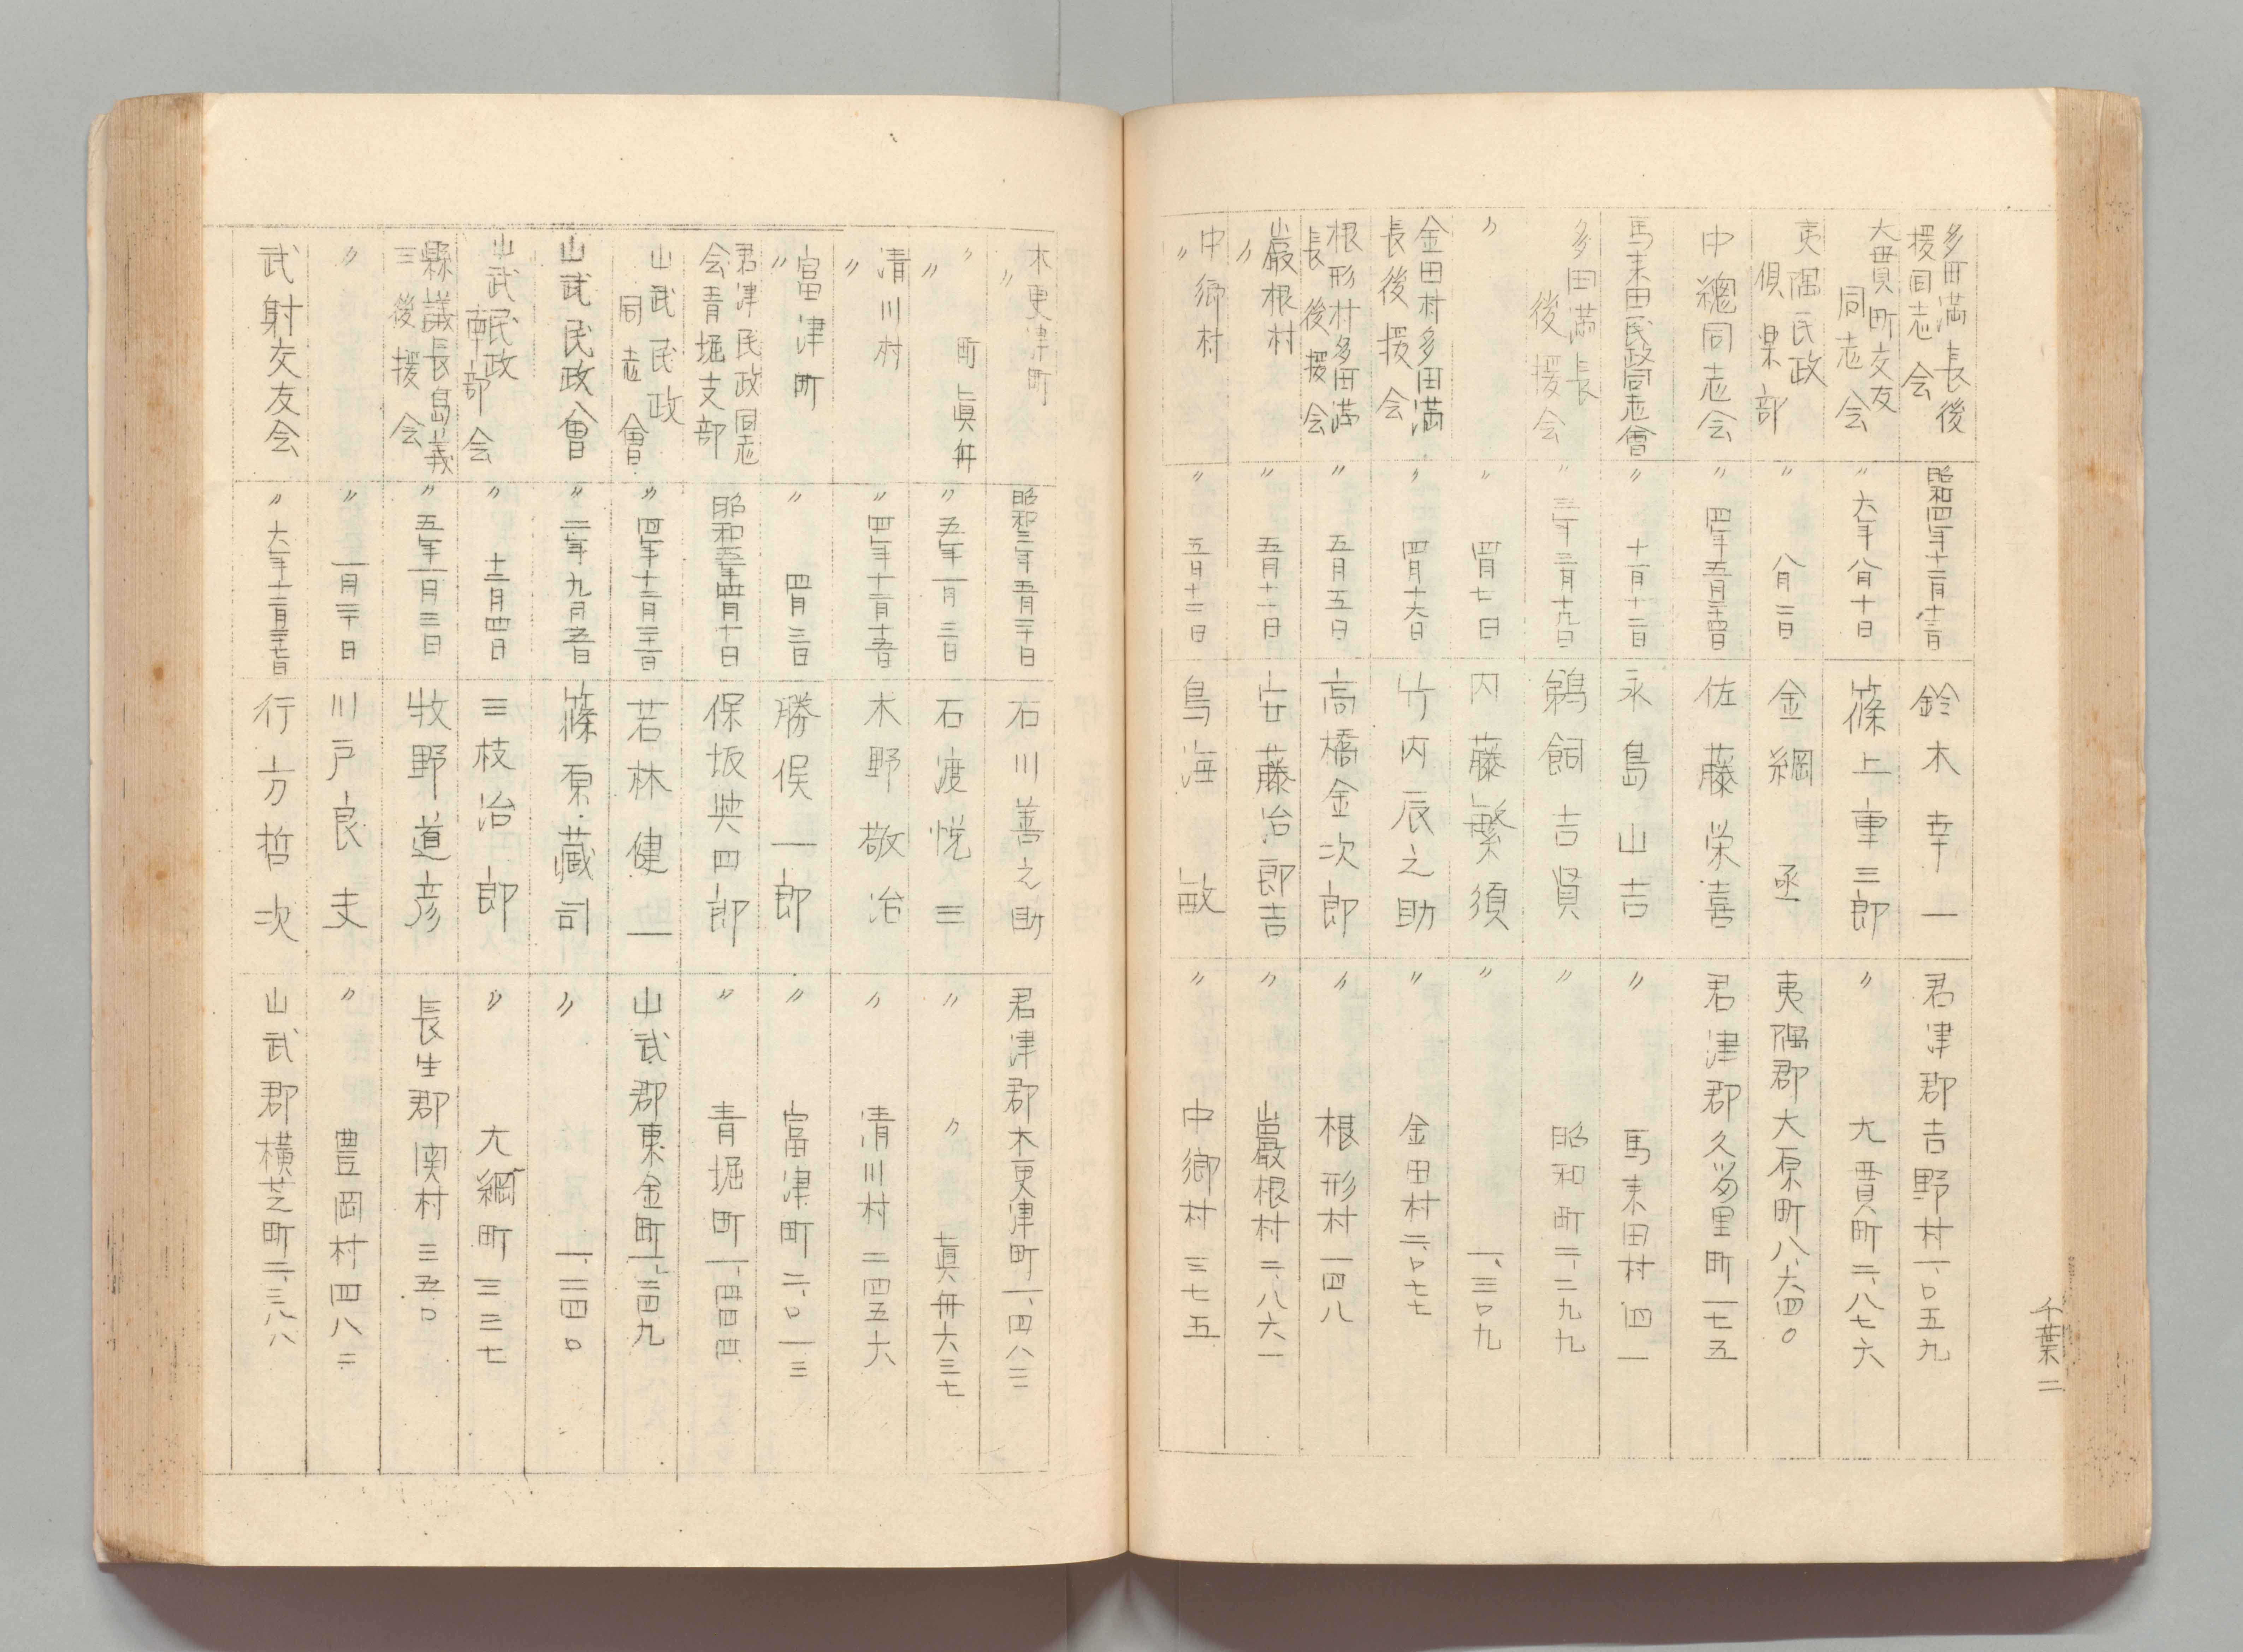 千葉二
多田満長後援同志会 昭和四年十二月十三日 鈴木幸一 君津郡吉野村一、〇五九
大貫町交友同志会 〃六年八月十日 篠上重三郎 〃大貫町二、八七六
夷隅民政倶楽部 〃八月二日 金綱丞 夷隅郡大原町八、六四〇
中總同志会 〃四年五月二十四日 佐藤栄喜 君津郡久留里町一七五
馬来田民政同志會 〃十一月十二日 永島山吉 〃馬来田村四一
多田満長後援会 〃三年三月十九日 鵜飼吉賢 〃昭和町二、二九九
〃 〃四月七日 内藤繁須 〃一、三〇九
金田村多田満長後援会 〃四月十六日 竹内辰之助 〃金田村二、〇七七
根形村多田満長後援会 〃五月五日 高橋金次郎 〃根形村一四八
巌根村〃 〃五月十一日 安藤治郎吉 〃巌根村二、八六一
中郷村〃 〃五月十二日 鳥海敏 〃中郷村三七五
木更津町〃 昭和三年五月二十日 石川善之助 君津郡木更津町一、四八三
〃町眞舟〃 〃五年一月三日 石渡悦三 〃〃眞舟六三七
清川村〃 〃四年十二月十五日 木野敬治 〃清川村二四五六
富津町〃 〃四月三日 勝俣一郎 〃富津町二、〇一三
君津民政同志会青堀支部 昭和五年四月十日 保坂與四郎 〃青堀町一、四四四
山武民政同志會 〃四年十二月二十三日 若林健一 山武郡東金町一、三四九
山武民政會 〃二年九月五日 篠原藏司 〃一、三四〇
山武民政南部会 〃十二月四日 三枝治郎 〃大網町三三七
縣議長島義三後援会 〃五年一月三日 牧野道彦 長生郡関村三五〇
〃 〃一月二十日 川戸良支 〃豊岡村四八二
武射交友会 〃六年十二月二十七日 行方哲次 山武郡横芝町二、三八八